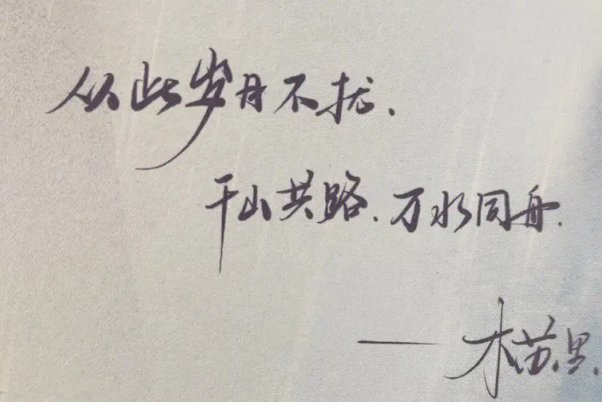 从此岁月不扰、
千山共路、万水同舟.
——木苏里.